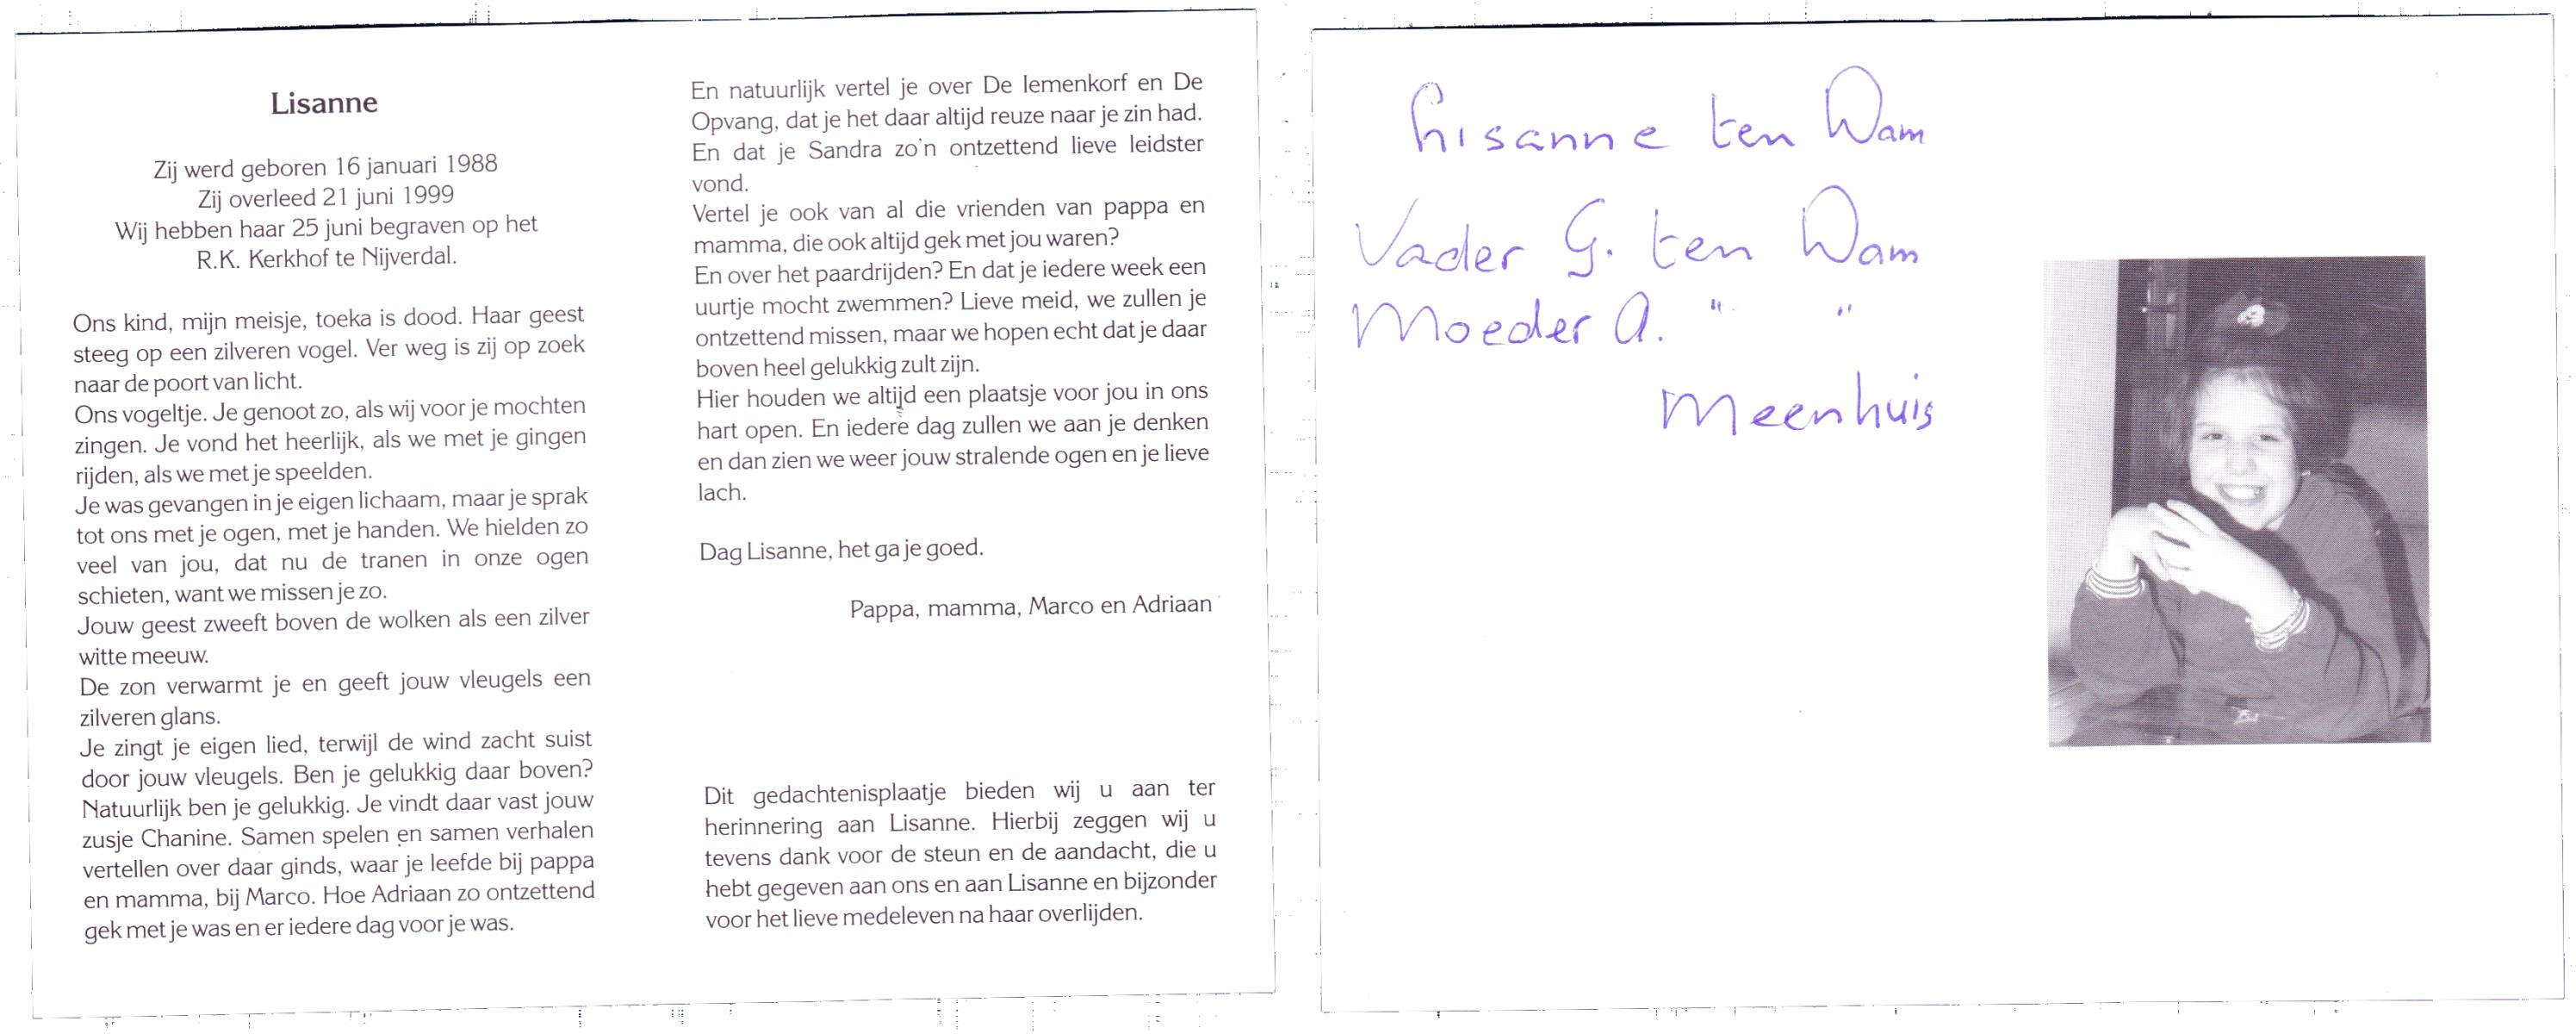 Lisanne
Zij werd geboren 16 januari 1988
Zij overleed 21 juni 1999
Wij hebben haar 25 juni begraven op het
R.K. Kerkhof te Nijverdal.
Ons kind, mijn meisje, toeka is dood. Haar geest
steeg op een zilveren vogel. Ver weg is zij op zoek
naar de poort van licht.
Ons vogeltje. Je genoot zo, als wij voor je mochten
zingen. Je vond het heerlijk, als we met je gingen
rijden, als we met je speelden.
Je was gevangen in je eigen lichaam, maar je sprak
tot ons met je ogen, met je handen. We hielden zo
veel van jou, dat nu de tranen in onze ogen
schieten, want we missen je zo.
Jouw geest zweeft boven de wolken als een zilver
witte meeuw.
De zon verwarmt je en geeft jouw vleugels een
zilveren glans.
Je zingt je eigen lied, terwijl de wind zacht suist
door jouw vleugels. Ben je gelukkig daar boven?
Natuurlijk ben je gelukkig. Je vindt daar vast jouw
zusje Chanine. Samen spelen en samen verhalen
vertellen over daar ginds, waar je leefde bij pappa
en mamma, bij Marco. Hoe Adriaan zo ontzettend
gek met je was en er iedere dag voor je was.
En natuurlijk vertel je over De Iemenkorf en De
Opvang, dat je het daar altijd reuze naar je zin had.
En dat je Sandra zo'n ontzettend lieve leidster
vond.
Vertel je ook van al die vrienden van pappa en
mamma, die ook altijd gek met jou waren?
En over het paardrijden? En dat je iedere week een
uurtje mocht zwemmen? Lieve meid, we zullen je
ontzettend missen, maar we hopen echt dat je daar
boven heel gelukkig zult zijn.
Hier houden we altijd een plaatsje voor jou in ons
hart open. En iedere dag zullen we aan je denken
en dan zien we weer jouw stralende ogen en je lieve
lach.
Dag Lisanne, het ga je goed.
Pappa, mamma, Marco en Adriaan
Dit gedachtenisplaatje bieden wij u aan ter
herinnering aan Lisanne. Hierbij zeggen wij u
tevens dank voor de steun en de aandacht, die u
hebt gegeven aan ons en aan Lisanne en bijzonder
voor het lieve medeleven na haar overlijden.
Lisanne ten Dam
Vader G. ten Dam
Moeder A. " "
Meenhuis